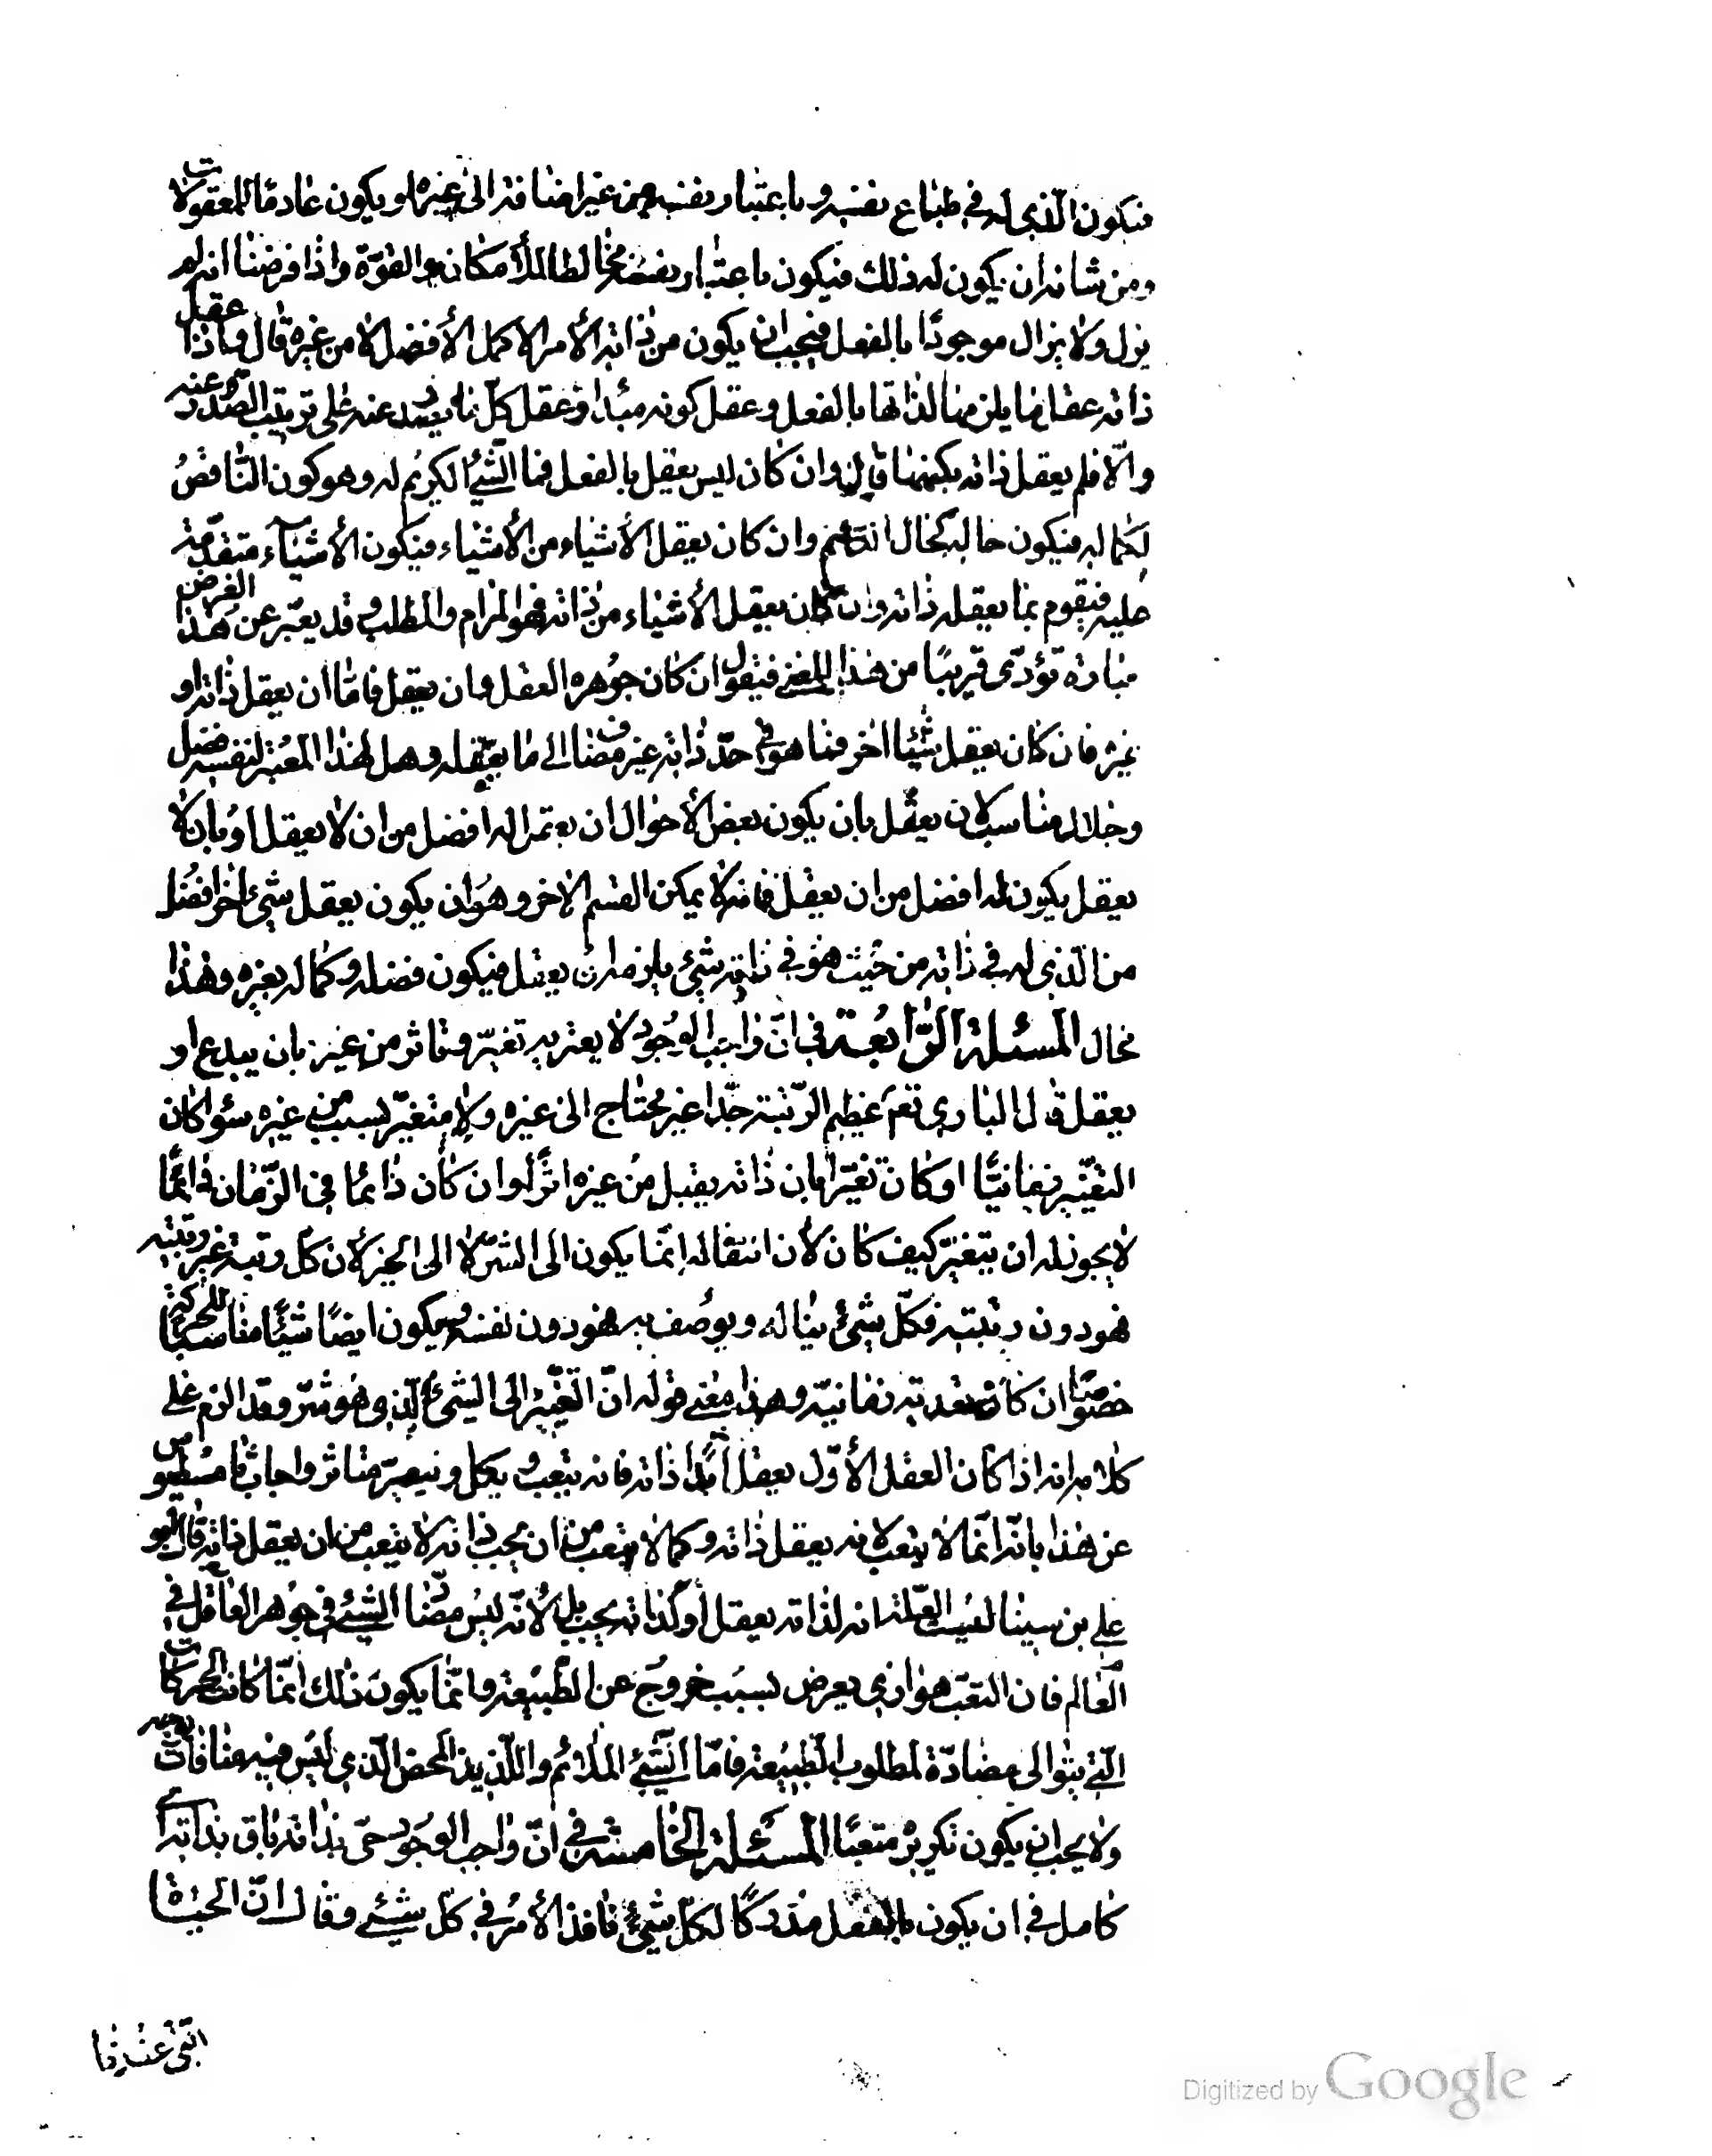 فيكون الذي له في طباع نفسه وباعتبار نفسه من غير اضافة الى غيره لو يكون عادما للمعقولات
ومن شانه ان يكون له ذلك فيكون باعتبار نفسه مخالطا للامكان والقوة واذا فرضنا انه لم
يزل ولا يزال موجودًا بالفعل فيجب ان يكون من ذاته الأمر الاكمل الأفضل لا من غيره قال واذا عقل
ذاته عقل ما يلزمها لذاتها بالفعل وعقل كونه مبدا وعقل كل ما يصدر عنه على ترتيب الصدور عنه
والّا فلم يعقل ذاته بكنهها قال وان كان ليس يعقل بالفعل فما الشئ الكريم له وهو كون الناقصُ
كماله فيكون حاله كحال النائم وان كان يعقل الأشياء من الأشياء فيكون الأشيآء متقدمة
عليه فيقوم بما يعقله ذاته وان كان يعقل الأشياء من ذاته فهو المرام والمطلب وقد يعبّر عن هذا الغرض
عبارة تؤدّى قريبًا من هذا المعنى فيقول ان كان جوهره العقل وان يعقل فامّا ان يعقل ذاته او
غيره فان كان يعقل شيئا اخر فما هو في حدّ ذاته غير مضاف الى ما يعقله وهل لهذا المعتبر لنفسه فضل
وجلال مناسب لان يعقل بان يكون بعض الأحوال ان يعقل له افضل من ان لا يعقل او بان لا
يعقل يكون له افضل من ان يعقل فانه لا يمكن القسم الاخر وهو ان يكون يعقل شئ اخر افضل
من الذي له في ذاته من حيث هو في ذاته شئ يلزمه ان يعقل فيكون فضله وكماله بغيره وهذا
محال المسئلة الرّابعة في انّ واجب الوجود لا يعتريه تغيّر وتاثر من غير بان يبدع او
يعقل قال البارى تعم عظيم الرّتبة جدّا غير محتاج الى غيره ولا متغيّر بسبب من غيره سوا كان
التغيّر زمانيًّا او كان تغيّرا بان ذاته يقبل من غيره اثرًا وان كان دائما في الزّمان وانّما
لا يجوز له ان يتغيّر كيف كان لأن انتقاله انّما يكون الى الشرّ لا الى الخير لأن كل رتبة غير رتبته
فهو دون رتبته فكلّ شئ يناله ويوصف به فهو دون نفسه ويكون ايضًا شيئًا مناسبًا للحركة
خصوصًا ان كانت بعدته زمانية وهذا معنى قوله انّ التغيّر الى الشئ الّذي هو شرّ وقد الزم على
كلامه انه اذا كان العقل الأوّل يعقل ابدًا ذاته فانه يتعب ويكل ويتغيّر ويتاثر واجاب ثامسطيوس
عن هذا بانّه انّما لا يتعب لانه يعقل ذاته وكما لا يتعب من ان يحب ذاته لا يتعب من ان يعقل ذاته قال ابو
علي بن سينا ليست العلّة انه لذاته يعقل او لذاته يحب بل لأنّه ليس مضادّا لشئ في جوهر العاقل في
العالم فان التعب هو اذى يعرض بسبب خروج عن الطّبيعة وانّما يكون ذلك انّما كانت الحركات
التي تتوالى مضادّة لمطلوب الطّبيعة فامّا الشئ الملائم واللّذيذ المحض الّذي ليس فيه منافات بوجه
ولا يجب ان يكون تكريره متعبًا المسئلة الخامسة في انّ واجب الوجود حىّ بذاته باق بذاته اى
كامل في ان يكون بالفعل مدركًا لكلّ شئ نافذ الأمر في كل شئ وقال انّ الحيوة
التى عندنا
Digitized by Google